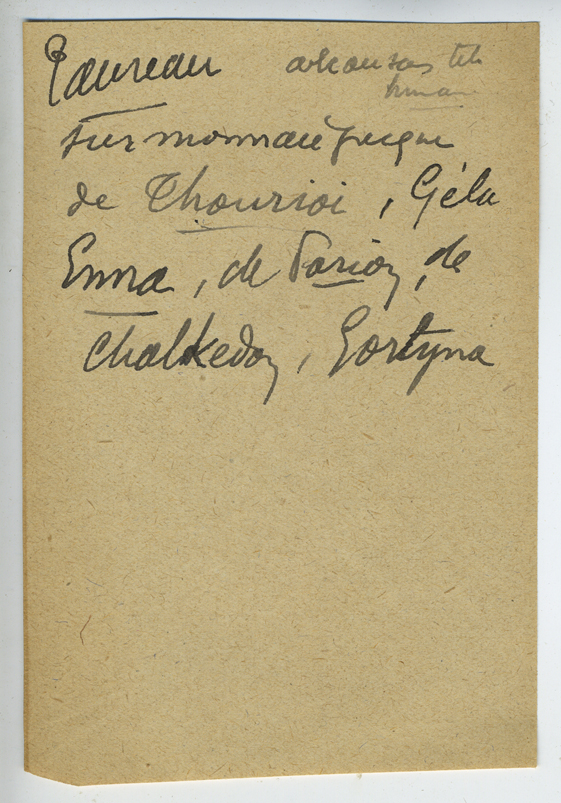 Taureau
tête
humaine
sur monnaie grecque
de Thourioi, Géla
Enna, de Parion, de
Chalkedon, Gortyna